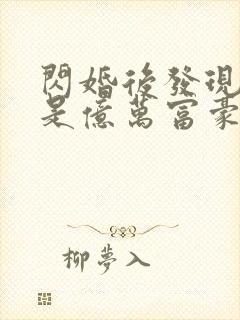 閃婚後發現
是億萬富豪
柳夢入